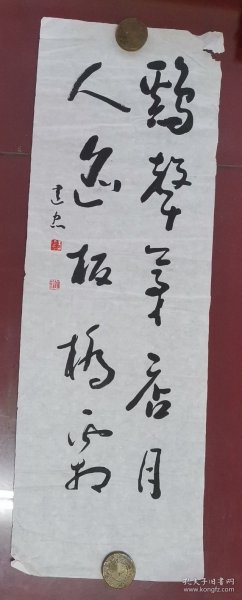 鷄聲茅店月
人迹板橋霜
建忠
孔夫子旧书网